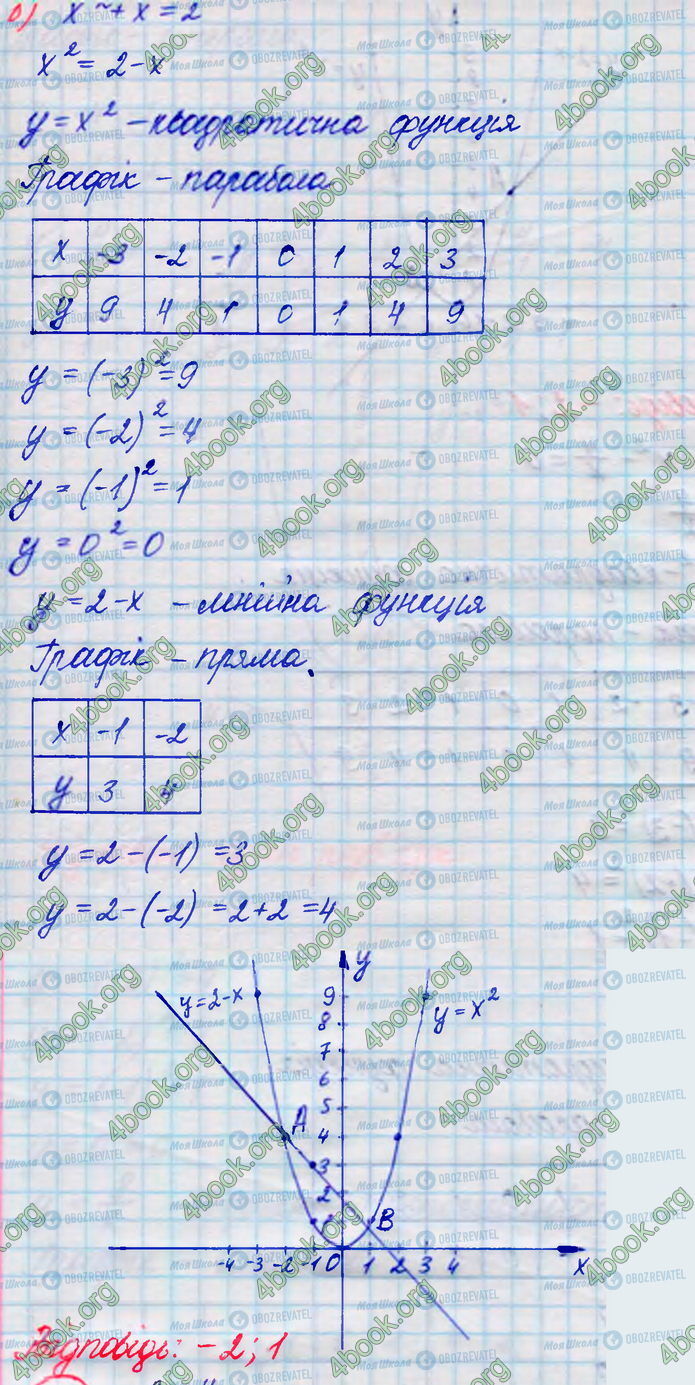 x² + x = 2
x² = 2 - x
y = x² - квадратична функція
Графік - парабола
x -3 -2 -1 0 1 2 3
y 9 4 1 0 1 4 9
y = (-3)² = 9
y = (-2)² = 4
y = (-1)² = 1
y = 0² = 0
y = 2 - x - лінійна функція
Графік - пряма.
x -1 -2
y 3
y = 2 - (-1) = 3
y = 2 - (-2) = 2 + 2 = 4
y
y = 2 - x
9
y = x²
8
7
6
5
A
4
3
2
1
B
-4 -3 -2 -1 0 1 2 3 4 x
Відповідь: -2; 1
4book.org
Моя Школа
OBOZREVATEL